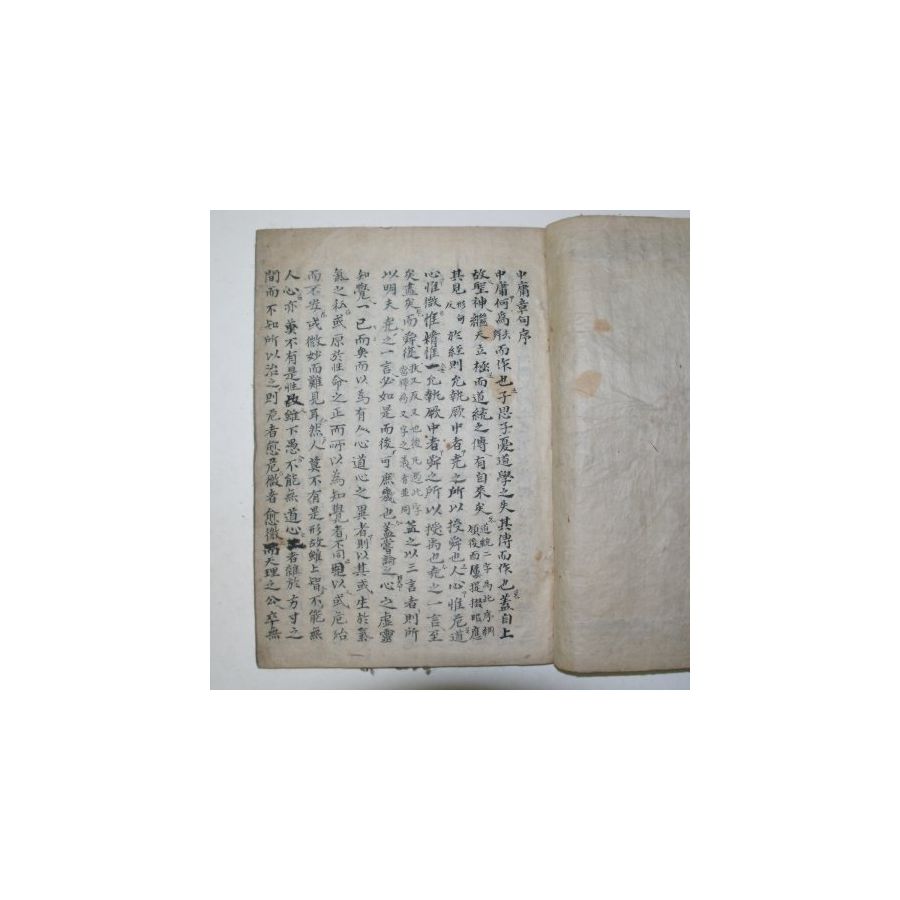 中庸章句序
中庸何為而作也子思子憂道學之失其傳而作也蓋自上
故聖神繼天立極而道統之傳有自來矣道統二字為此序綱領後面屢提掇照應
其見形甸反於經則允執厥中者堯之所以授舜也人心惟危道
心惟微惟精惟一允執厥中者舜之所以授禹也堯之一言至
矣盡矣而舜復扶又反又也後凡遇此字當釋為又字之義者並同益之以三言者則所
以明夫堯之一言必如是而後可庶幾也蓋嘗論之心之虛靈
知覺一已而矣而以為有人心道心之異者則以其或生於
氣之私或原於性命之正而所以為知覺者不同是以或危殆
而不安或微妙而難見耳然人莫不有是形故雖上智不能無
人心亦莫不有是性故雖下愚不能無道心二者雜於方寸之
間而不知所以治之則危者愈危微者愈微而天理之公卒無